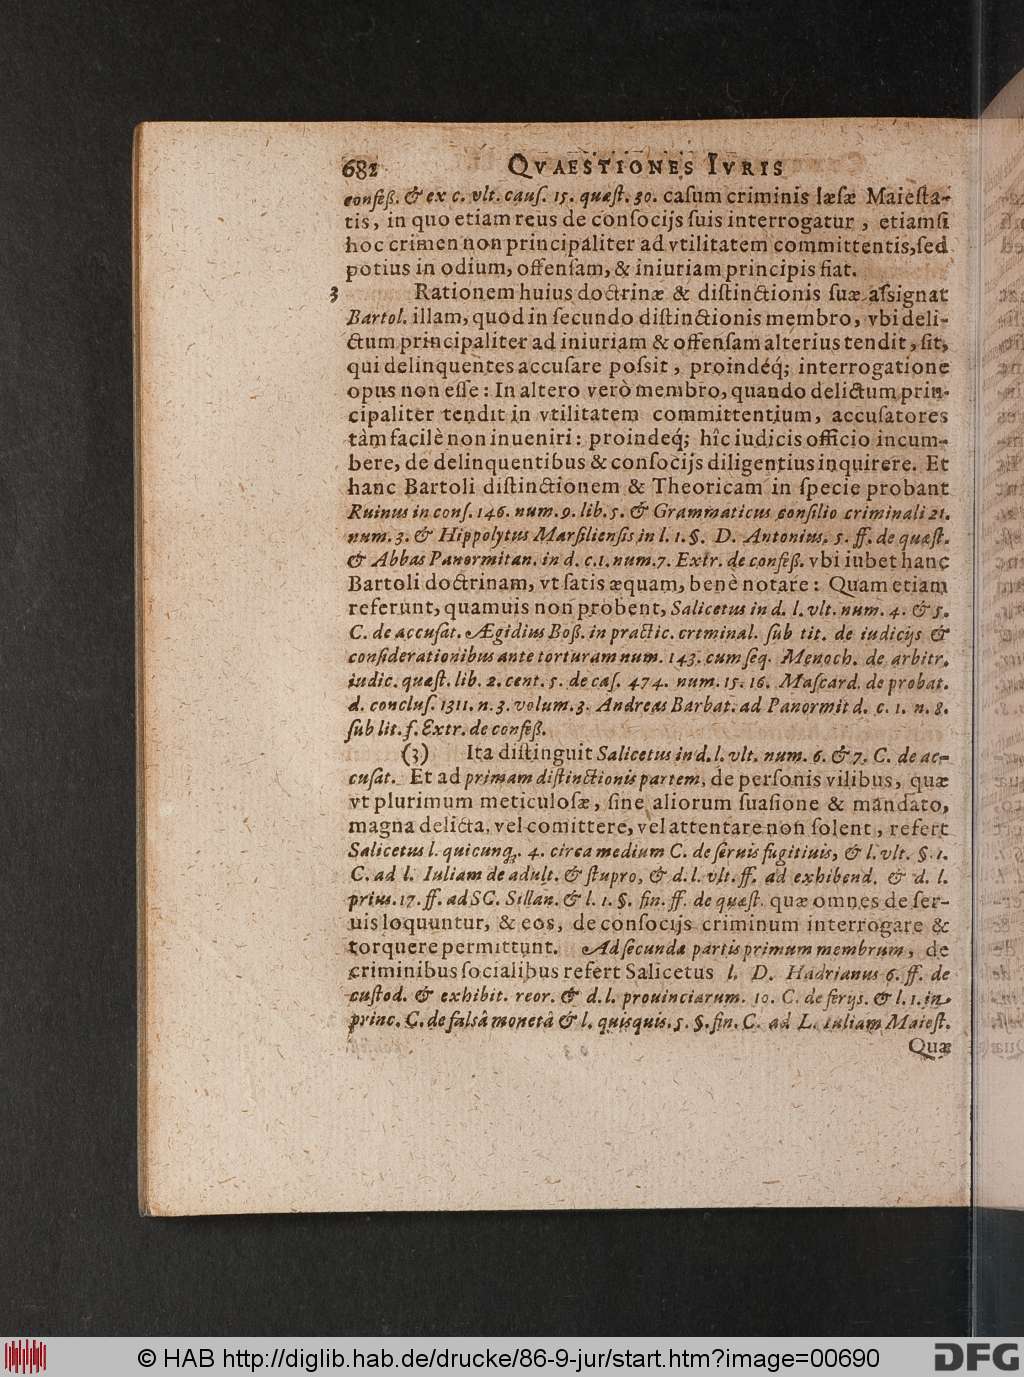 682 QVAESTIONES IVRIS
confeß. & ex c. vlt. cauſ. 15. quæſt. 30. caſum criminis læſæ Maieſta-
tis, in quo etiam reus de conſocijs ſuis interrogatur, etiamſi
hoc crimen non principaliter ad vtilitatem committentis, ſed
potius in odium, offenſam, & iniuriam principis fiat.
3 Rationem huius doctrinæ & diſtinctionis ſuæ aſsignat
Bartol. illam, quod in ſecundo diſtinctionis membro, vbi deli-
ctum principaliter ad iniuriam & offenſam alterius tendit, ſit,
qui delinquentes accuſare poſsit, proindéq́; interrogatione
opus non eſſe: In altero verò membro, quando delictum prin-
cipaliter tendit in vtilitatem committentium, accuſatores
tàm facilè non inueniri: proindeq́; hîc iudicis officio incum-
bere, de delinquentibus & conſocijs diligentius inquirere. Et
hanc Bartoli diſtinctionem & Theoricam in ſpecie probant
Ruinus in conſ. 146. num. 9. lib. 5. & Grammaticus conſilio criminali 21.
num. 3. & Hippolytus Marſilienſis in l. 1. §. D. Antonius. 5. ff. de quæſt.
& Abbas Panormitan. in d. c. 1. num. 7. Extr. de confeß. vbi iubet hanc
Bartoli doctrinam, vt ſatis æquam, benè notare: Quam etiam
referunt, quamuis non probent, Salicetus in d. l. vlt. num. 4. & 5.
C. de accuſat. Ægidius Boß. in practic. crtminal. ſub tit. de iudicijs &
conſiderationibus ante torturam num. 143. cum ſeq. Menoch. de arbitr.
iudic. quæſt. lib. 2. cent. 5. de caſ. 474. num. 15. 16. Maſcard. de probat.
d. concluſ. 1311. n. 3. volum. 3. Andreas Barbat. ad Panormit d. c. 1. n. 8.
ſub lit. f. Extr. de confeß.
(3) Ita diſtinguit Salicetus in d. l. vlt. num. 6. & 7. C. de ac-
cuſat. Et ad primam diſtinctionis partem, de perſonis vilibus, quæ
vt plurimum meticuloſæ, ſine aliorum ſuaſione & mandato,
magna delicta, vel comittere, vel attentare non ſolent, refert
Salicetus l. quicunq́;. 4. circa medium C. de ſeruis fugitiuis, & l. vlt. §. 1.
C. ad l. Iuliam de adult. & ſtupro, & d. l. vlt. ff. ad exhibend. & d. l.
prius. 17. ff. ad SC. Sillan. & l. 1. §. fin. ff. de quæſt. quæ omnes de ſer-
uis loquuntur, & eos, de conſocijs criminum interrogare &
torquere permittunt. Ad ſecunda partis primum membrum, de
criminibus ſocialibus refert Salicetus l. D. Hadrianus 6. ff. de
cuſtod. & exhibit. reor. & d. l. prouinciarum. 10. C. de ferijs. & l. 1. in
princ. C. de falsâ monetâ & l. quisquis. 5. §. fin. C. ad L. iuliam Maieſt.
Quæ
© HAB http://diglib.hab.de/drucke/86-9-jur/start.htm?image=00690 DFG